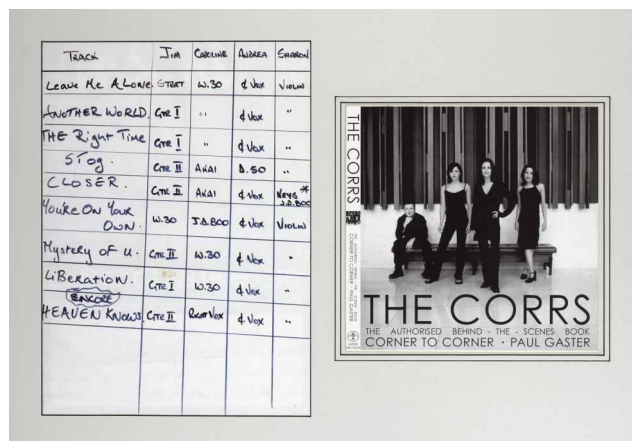 TRACK JIM CAROLINE ANDREA SHARON
Leave Me Alone. STRAT W.30 & Vox VIOLIN
ANOTHER WORLD. GTR I " & Vox "
THE Right Time GTR I " & Vox "
STOG. GTR II AKAI D.50 "
CLOSER. GTR II AKAI & Vox KEYS *
J.D.800
You're On Your
OWN. W.30 J.D.800 & Vox VIOLIN
Mystery of U. GTR II W.30 & Vox "
LiBERATION. GTR I W.30 & Vox "
ENCORE
HEAVEN KNOWS. GTR II Vox & Vox "
THE CORRS
THE AUTHORISED BEHIND-THE-SCENES BOOK
CORNER TO CORNER · PAUL GASTER
THE CORRS
THE AUTHORISED BEHIND - THE - SCENES BOOK
CORNER TO CORNER · PAUL GASTER